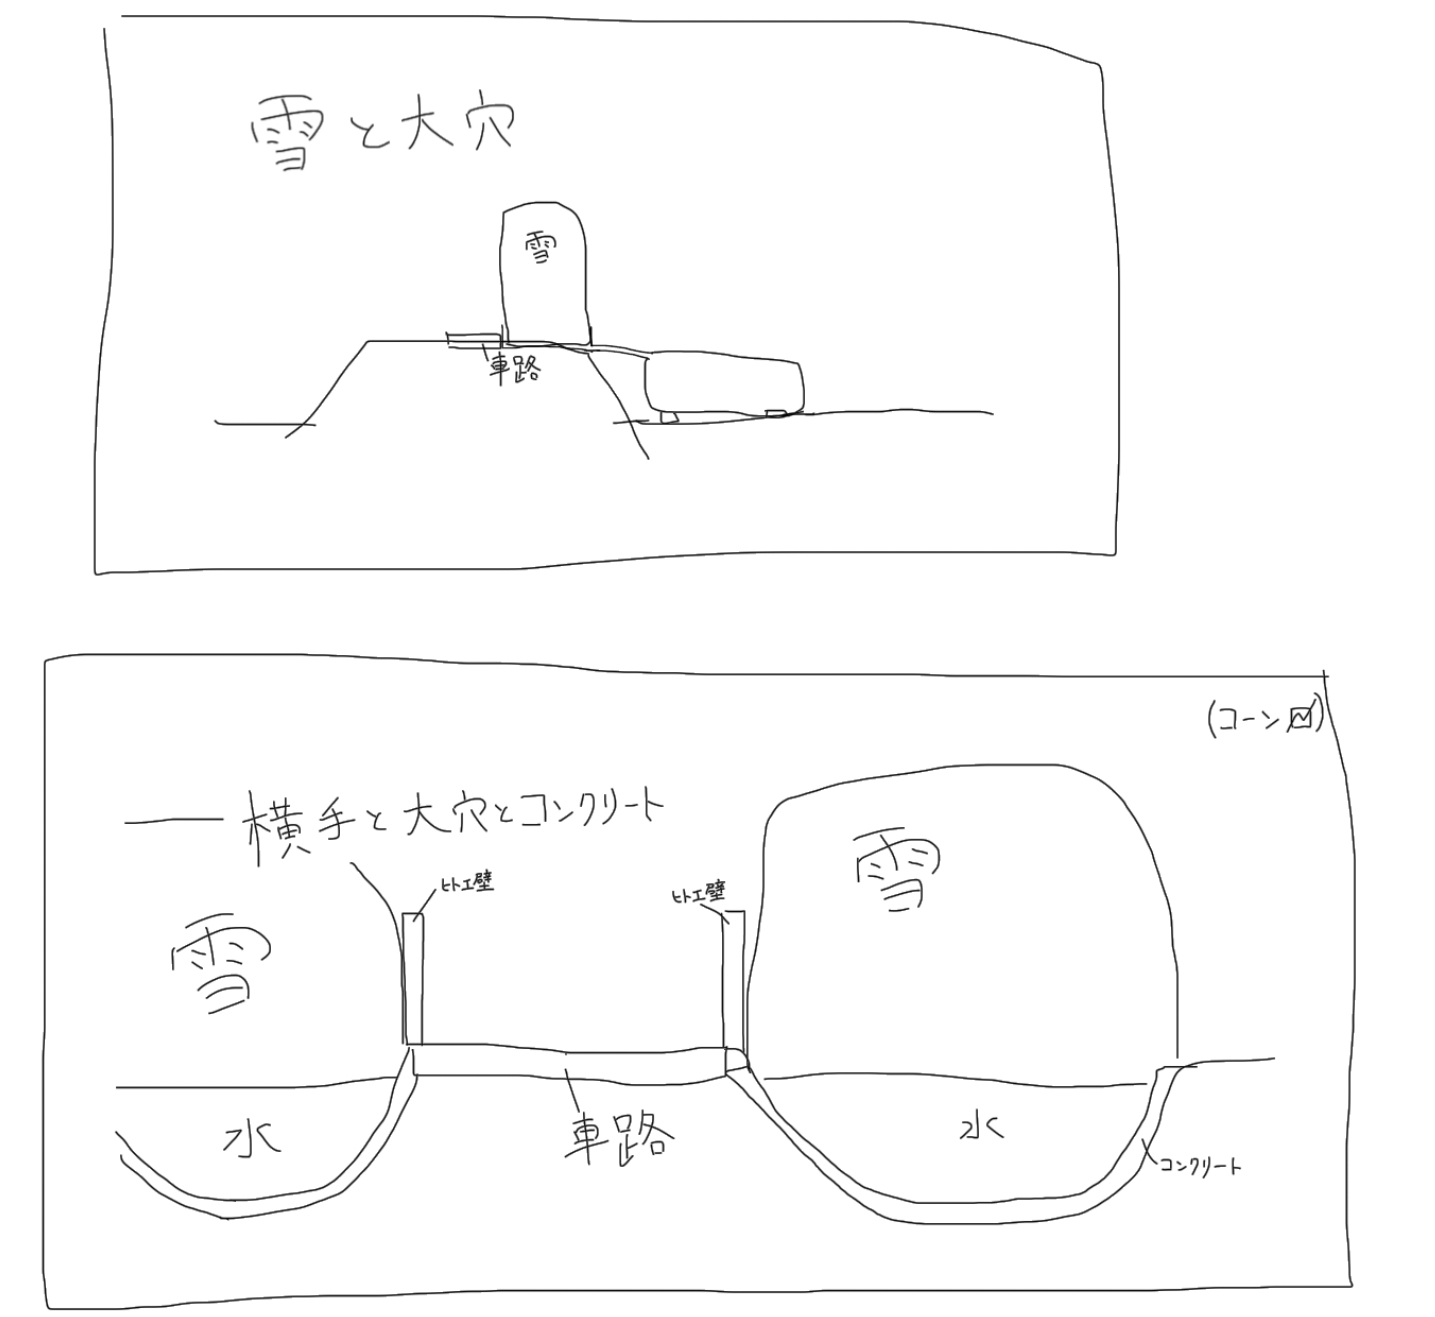 雪と大穴
雪
車路
(コーン
横手と大穴とコンクリート
ヒトエ壁
ヒトエ壁
雪
雪
水
車路
水
コンクリート